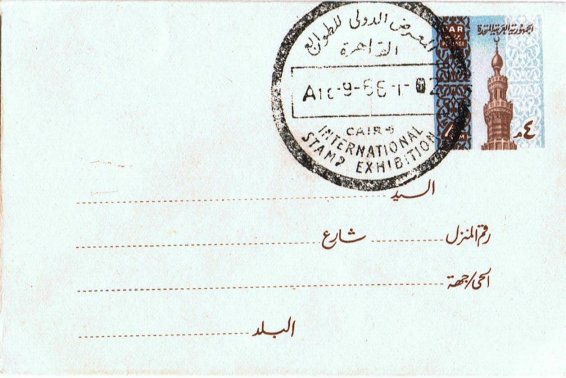 المعرض الدولى للطوابع
القاهرة
CAIRO
INTERNATIONAL
STAMP EXHIBITION
UAR
الجمهورية العربية المتحدة
٤م
السيد
رقم المنزل شارع
الحى/جهة
البلد